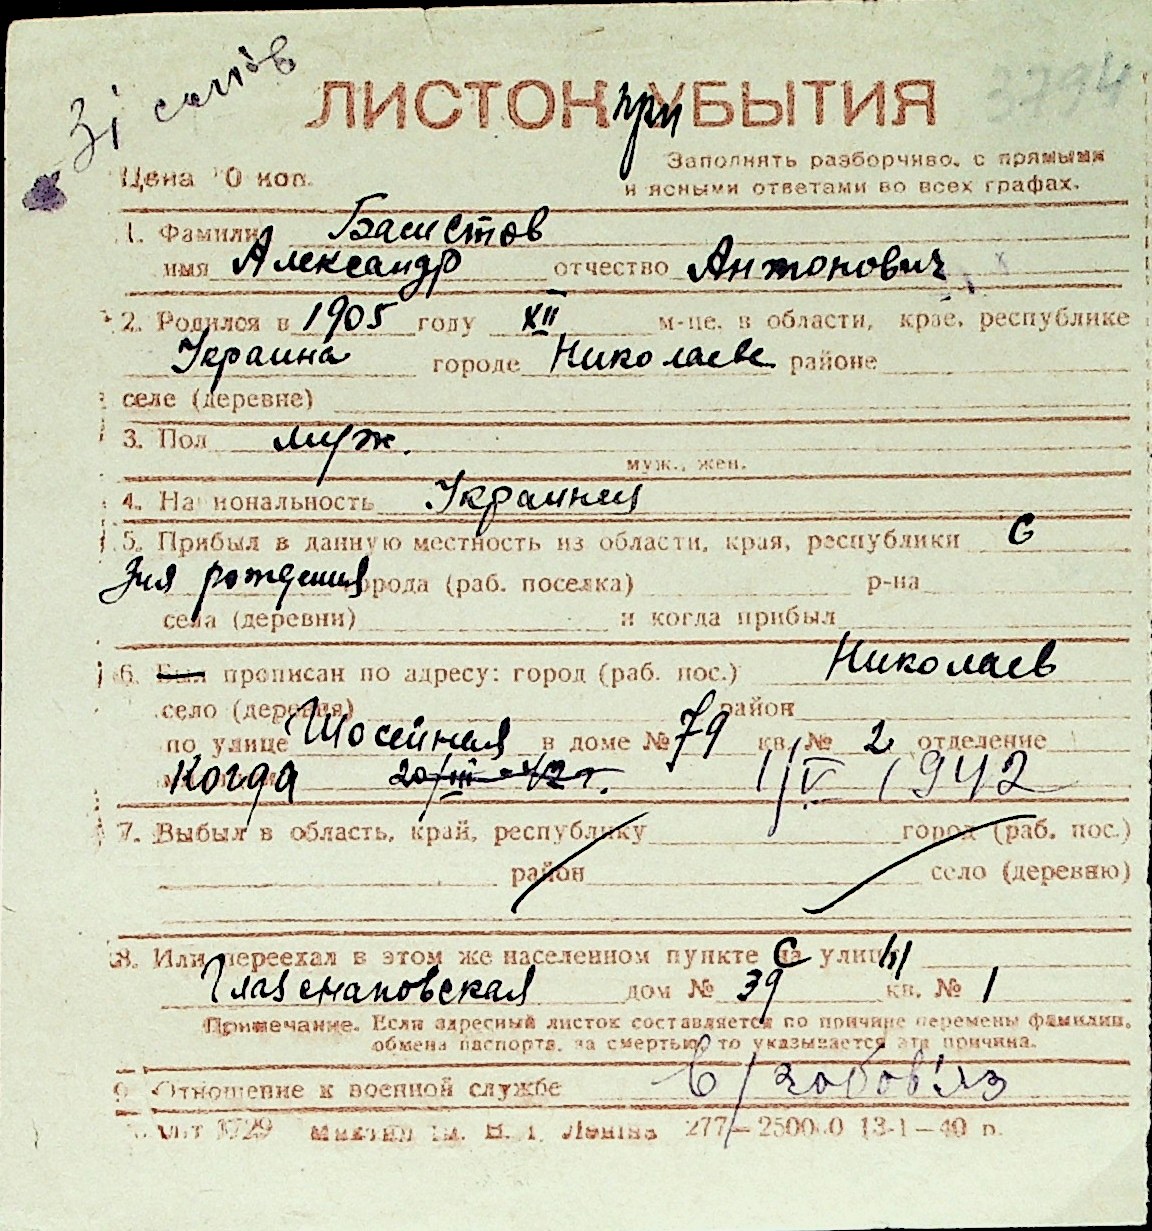 Зі снов
ЛИСТОК при УБЫТИЯ
3794
Заполнять разборчиво, с прямыми
и ясными ответами во всех графах.
Цена 10 коп.
1. Фамилия Баистов
имя Александр отчество Антонович
2. Родился в 1905 году XII м-це, в области, крае, республике
Украина городе Николаеве районе
селе (деревне)
3. Пол муж.
муж., жен.
4. Национальность Украинец
5. Прибыл в данную местность из области, края, республики С
дня рождения города (раб. поселка) р-на
села (деревни) и когда прибыл
6. Был прописан по адресу: город (раб. пос.) Николаев
село (деревня) район
по улице Шосейная в доме № 79 кв. № 2 отделение
Когда 20/III-42 г. 1/V 1942
7. Выбыл в область, край, республику город (раб. пос.)
район село (деревню)
8. Или переехал в этом же населенном пункте С на улицы
Глазенаповская дом № 39 кв. № 1
Примечание. Если адресный листок составляется по причине перемены фамилии,
обмена паспорта, за смертью, то указывается эта причина.
9. Отношение к военной службе в/зобов'яз
1729 им. В. І. Леніна 277–25000 13-1–40 р.